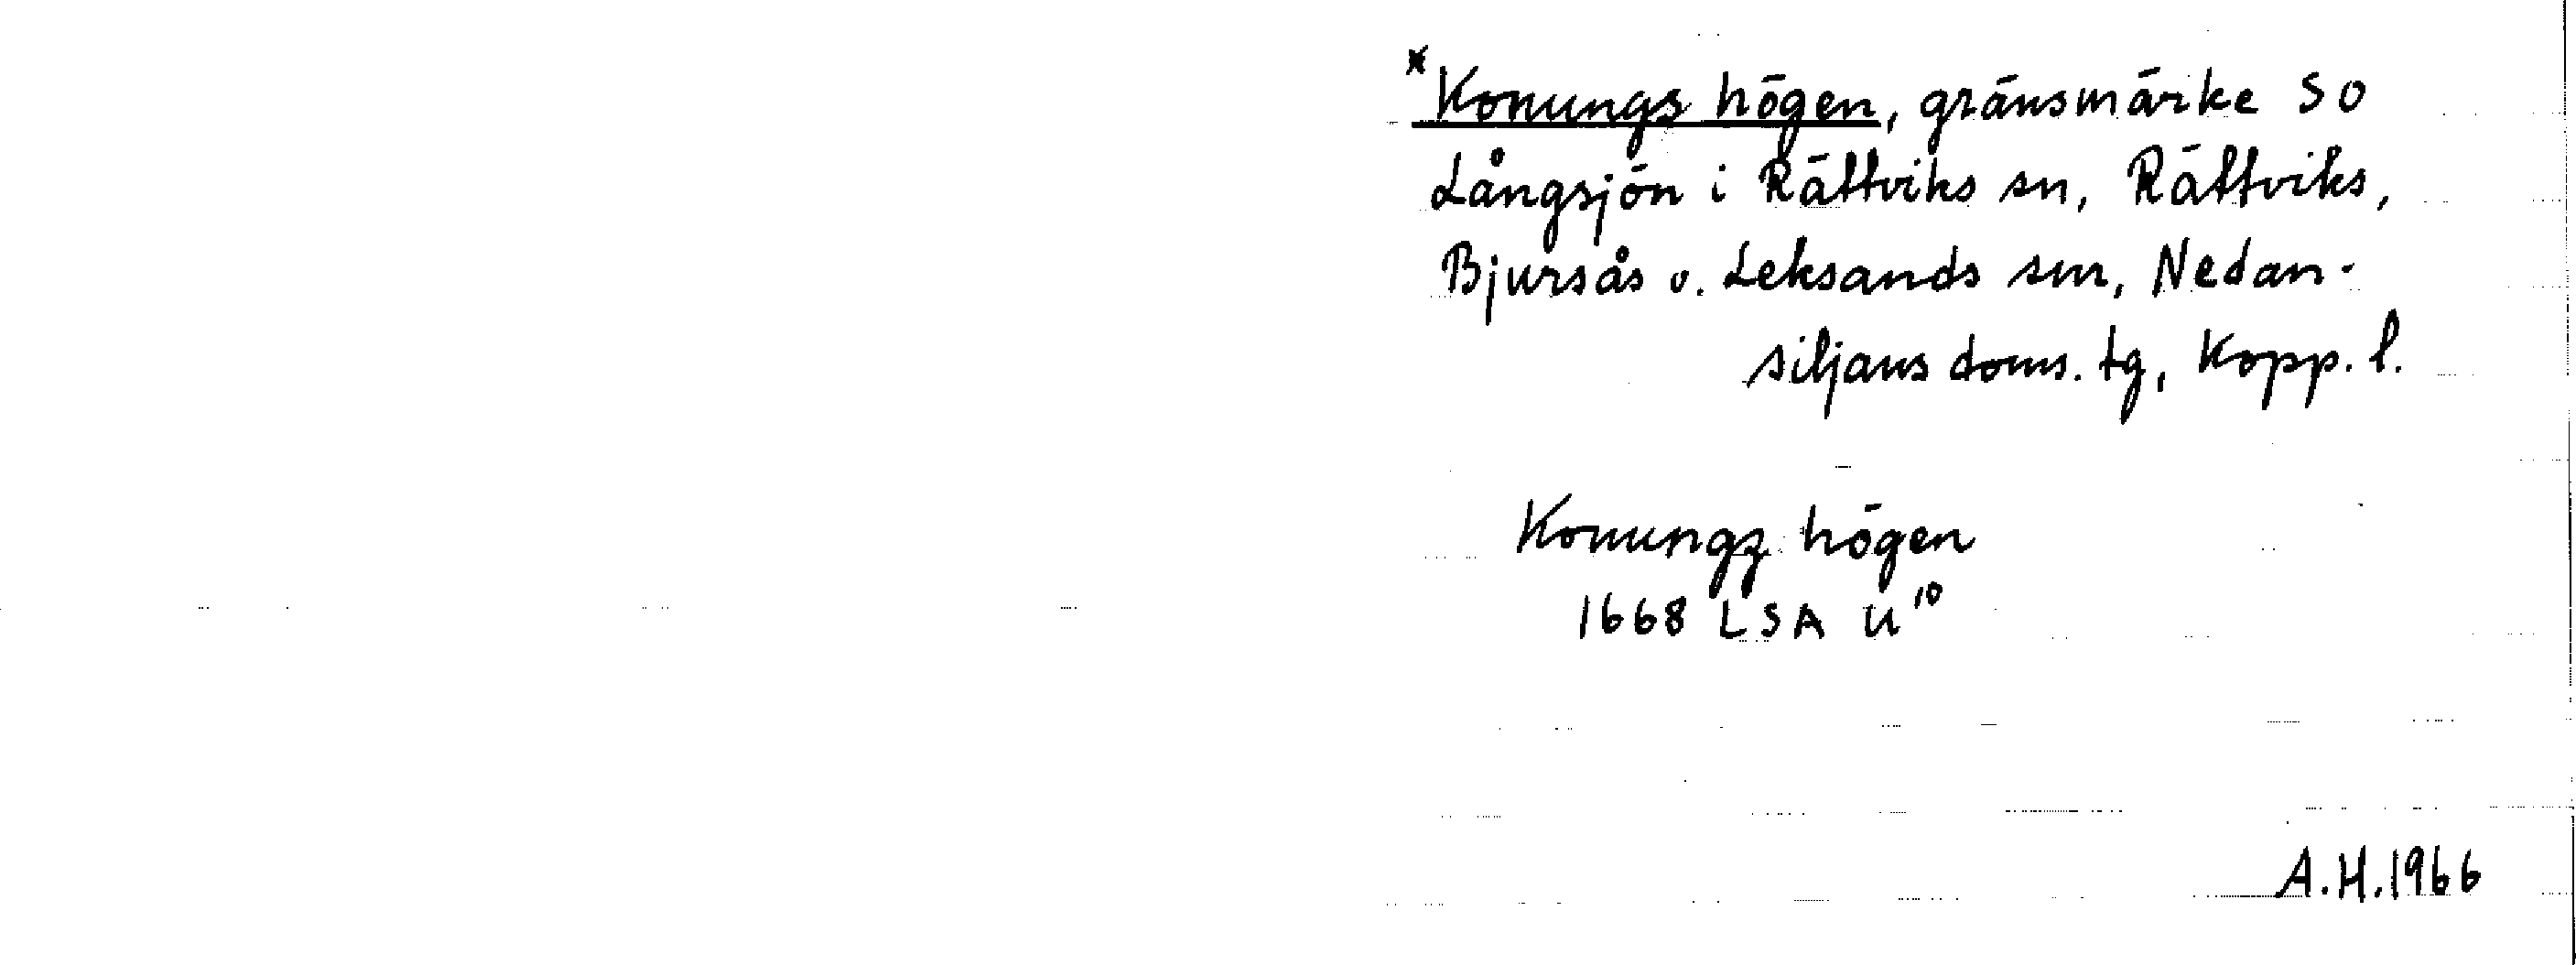 *Konungs högen, gränsmärke SO
Långsjön i Rättviks sn, Rättviks,
Bjursås o. Leksands snr, Nedan-
siljans doms. tg, Kopp. l.
Konungz högen
1668 LSA U¹⁰
A.H. 1966